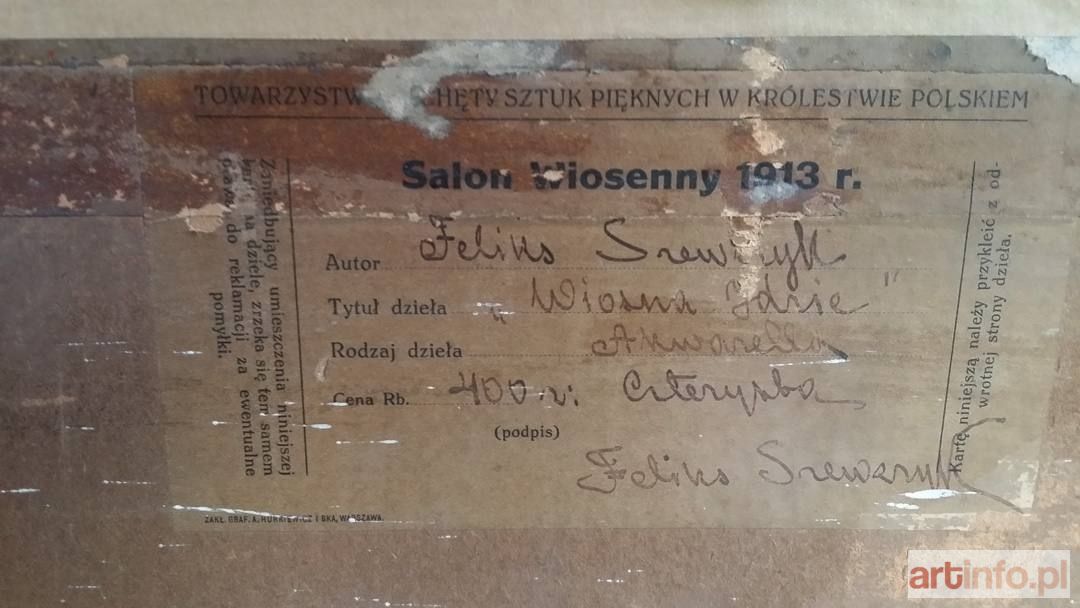 TOWARZYSTW CHĘTY SZTUK PIĘKNYCH W KRÓLESTWIE POLSKIEM
Salon Wiosenny 1913 r.
Autor Feliks Szewczyk
Tytuł dzieła „Wiosna Idzie”
Rodzaj dzieła Akwarella
Cena Rb. 400 r:
(podpis)
Feliks Szewczyk
Zaniedbujący umieszczenia niniejszej
na dziele, zrzeka się tem samem
prawa do reklamacji za ewentualne
pomyłki.
Kartę niniejszą należy przykleić z od-
wrotnej strony dzieła.
ZAKŁ. GRAF. A. HURKIEWICZ I SKA, WARSZAWA.
artinfo.pl